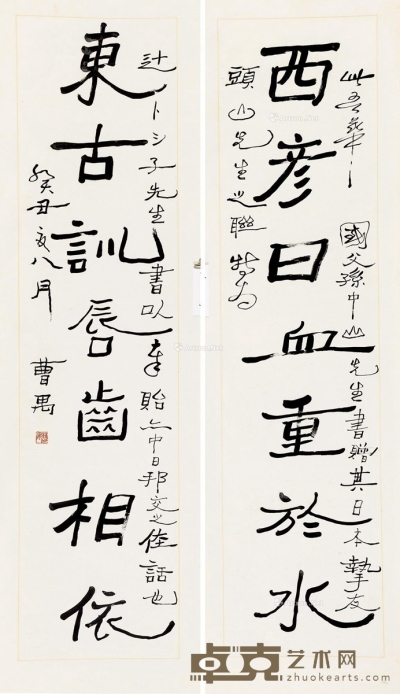 此吾華
國父孫中山先生書贈其日本摯友
西彦曰血重於水
頭山先生之聯 特為
子先生 書以奉貽亦中日邦交之佳話也
東古訓唇齒相依
癸丑 八月
曹禺
卓克艺术网
zhuokearts.com